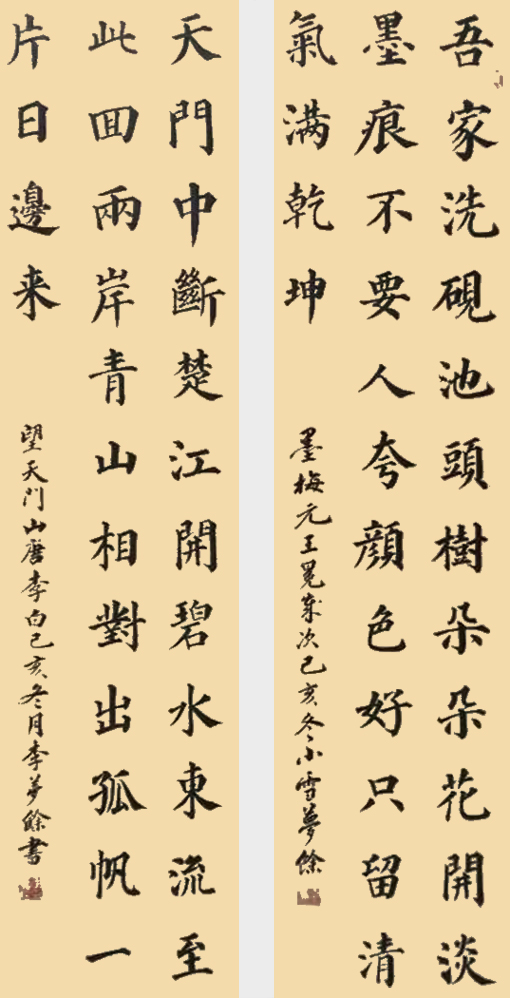 吾家洗硯池頭樹朵朵花開淡
墨痕不要人夸顔色好只留清
氣满乾坤
墨梅元王冕歲次己亥冬小雪夢餘
天門中斷楚江開碧水東流至
此回兩岸青山相對出孤帆一
片日邊来
望天门山唐李白己亥冬月李夢餘書